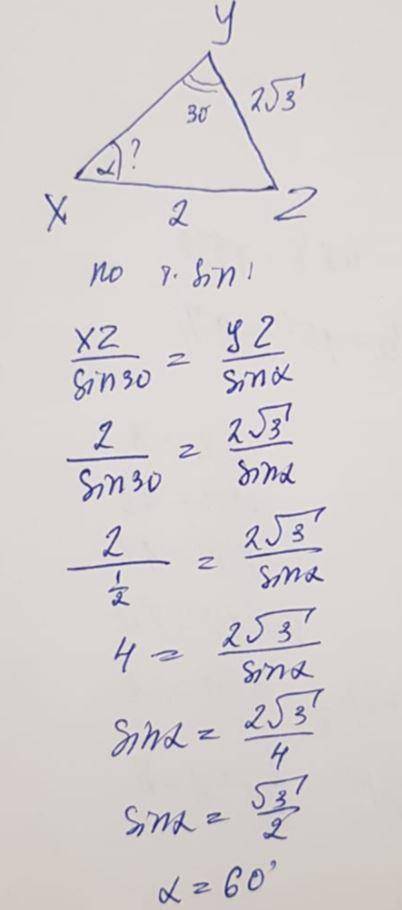 Y
30 2√3
α ?
X 2 Z
по т. Sin!
XZ/Sin30 = YZ/Sinα
2/Sin30 = 2√3/Sinα
2/(1/2) = 2√3/Sinα
4 = 2√3/Sinα
Sinα = 2√3/4
Sinα = √3/2
α = 60°